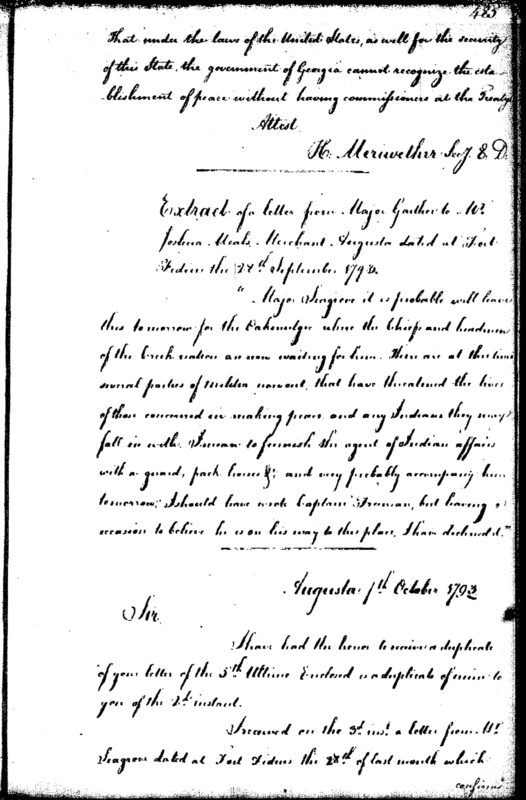 425
That under the laws of the United States, as well for the security
of this State, the government of Georgia cannot recognize the esta-
blishment of peace without having commissioners at the Treaty
Attest
H. Meriwether Secy E. D.
Extract of a letter from Major Gaither to Mr.
Joshua Meals, Merchant, Augusta dated at Fort
Fidius the 27th September 1793.
"Major Seagrove it is probable will leave
this tomorrow for the Oakemulgee where the Chiefs and headmen
of the Creek nation are now waiting for him. There are at this time
several parties of militia now out, that have threatened the lives
of those concerned in making peace and any Indians they may
fall in with. I mean to furnish the agent of Indian affairs
with a guard, pack horses &c; and very probably accompany him
tomorrow; I should have wrote Captain Freeman, but having
occasion to believe he is on his way to this place, I have declined it."
Augusta October 1793
Sir.
I have had the honor to receive a duplicate
of your letter of the 5th Ultimo Enclosed is a duplicate of mine to
you of the 2d instant.
I received on the 3d inst a letter from Mr
Seagrove dated at Fort Fidius the 28th of last month which
confirms